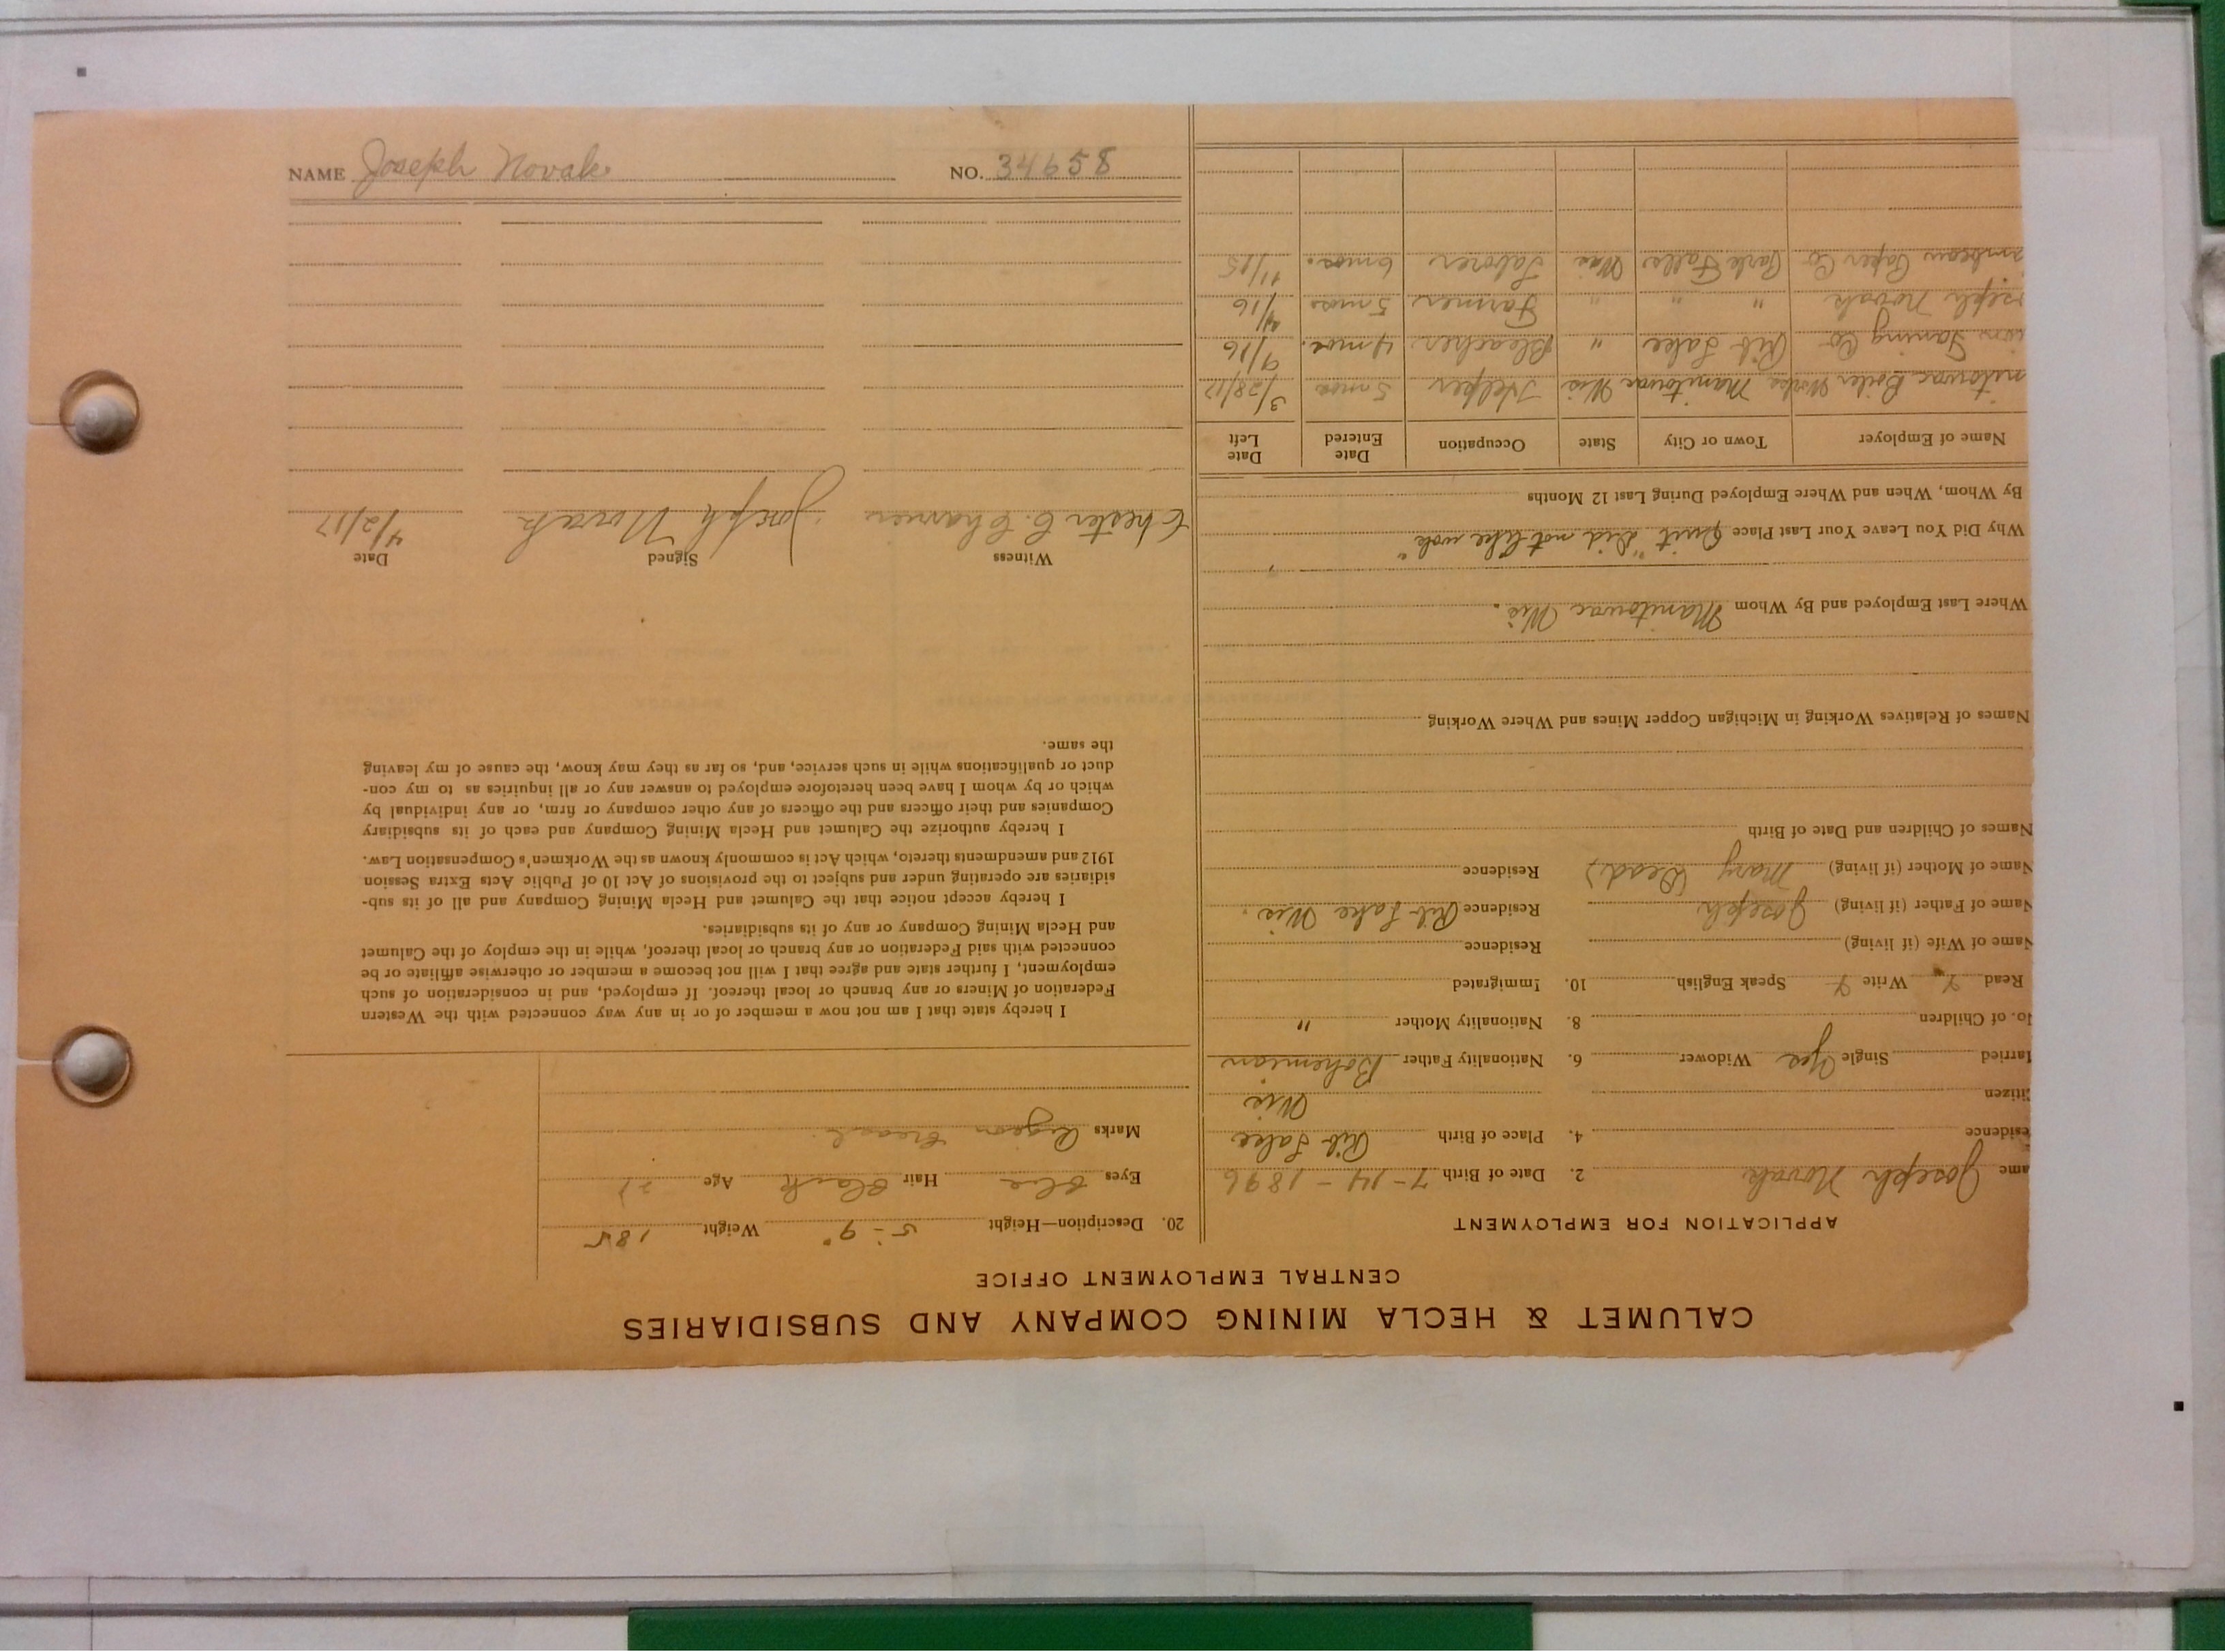 NAME Joseph Novak NO. 34658
CALUMET & HECLA MINING COMPANY AND SUBSIDIARIES
CENTRAL EMPLOYMENT OFFICE
APPLICATION FOR EMPLOYMENT
ame Joseph Novak 2. Date of Birth 7-14-1896
esidence 4. Place of Birth Rib Lake
itizen Wis
arried Single Yes Widower 6. Nationality Father Bohemian
o. of Children 8. Nationality Mother "
Read Y Write Y Speak English 10. Immigrated
Name of Wife (if living) Residence
Name of Father (if living) Joseph Residence Rib Lake Wis.
Name of Mother (if living) Mary (Dead) Residence
Names of Children and Date of Birth
Names of Relatives Working in Michigan Copper Mines and Where Working
Where Last Employed and By Whom Manitowac Wis.
Why Did You Leave Your Last Place Quit "Did not like work"
By Whom, When and Where Employed During Last 12 Months
Name of Employer Town or City State Occupation Date Entered Date Left
nitowac Boiler Works Manitowac Wis Helper 5 mos 3/28/17
Taning Co Rib Lake " Bleacher 4 mos. 9/16
seph Novak " " " Farmer 5 mos 4/16
Paper Co Park Falls Wis Laborer 6 mos. 11/15
20. Description—Height 5-9" Weight 185
Eyes Blue Hair Black Age 21
Marks
I hereby state that I am not now a member of or in any way connected with the Western
Federation of Miners or any branch or local thereof. If employed, and in consideration of such
employment, I further state and agree that I will not become a member or otherwise affiliate or be
connected with said Federation or any branch or local thereof, while in the employ of the Calumet
and Hecla Mining Company or any of its subsidiaries.
I hereby accept notice that the Calumet and Hecla Mining Company and all of its sub-
sidiaries are operating under and subject to the provisions of Act 10 of Public Acts Extra Session
1912 and amendments thereto, which Act is commonly known as the Workmen's Compensation Law.
I hereby authorize the Calumet and Hecla Mining Company and each of its subsidiary
Companies and their officers and the officers of any other company or firm, or any individual by
which or by whom I have been heretofore employed to answer any or all inquiries as to my con-
duct or qualifications while in such service, and, so far as they may know, the cause of my leaving
the same.
Witness Signed Date
Chester C. Joseph Novak 4/2/17